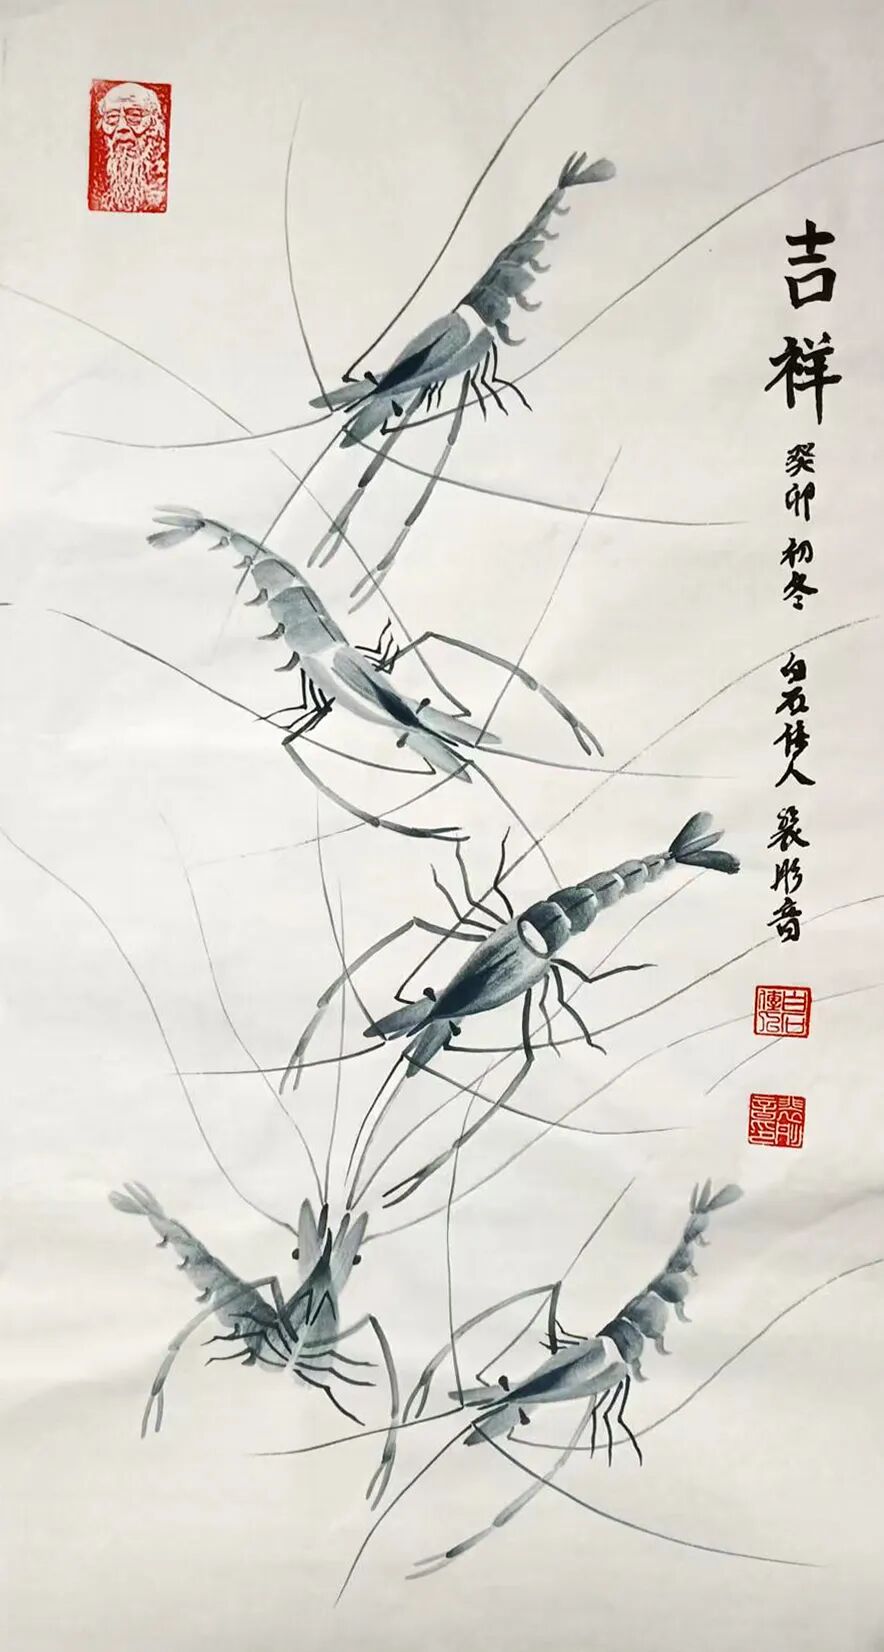 吉祥 癸卯初冬 白石传人 裴彤音
白石傳人